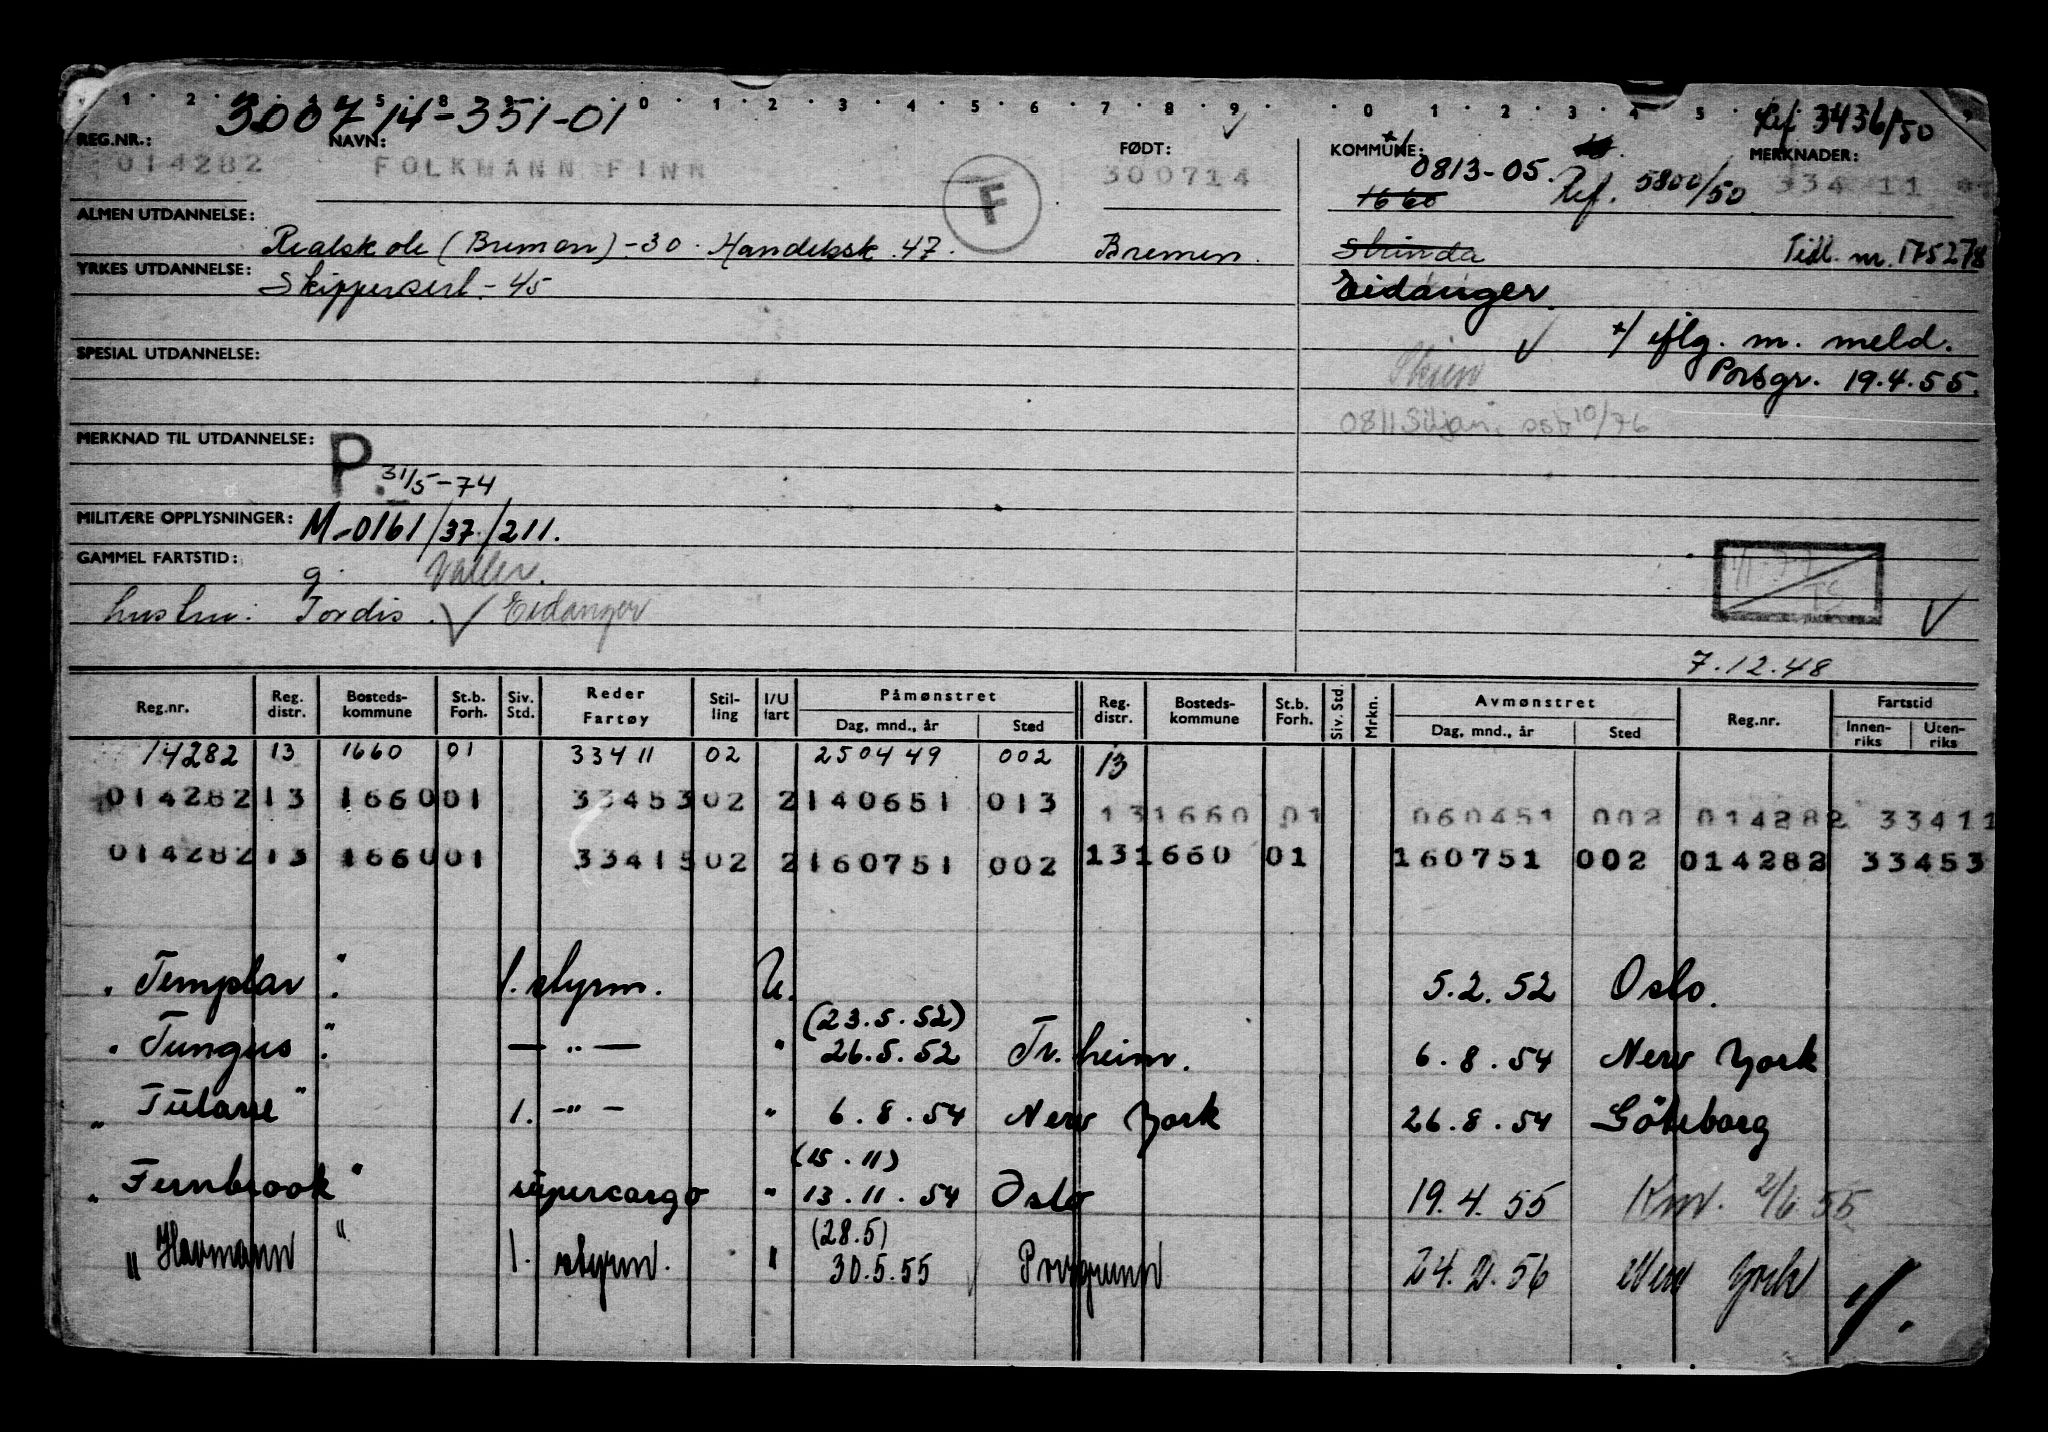 1 2 3 4 5 8 9 0 1 2 3 4 5 6 7 8 9 0 1 2 3 4 5
300714-351-01
Ref 3436/50
REG.NR.: NAVN: FØDT: KOMMUNE: MERKNADER:
014282 FOLKMANN FINN F 300714 0813-05. Ref. 5800/50 334 11
1660
ALMEN UTDANNELSE: Realskole (Bremen) -30. Handelssk. 47. Bremen. Strinda Tidl. nr. 175278
YRKES UTDANNELSE: Skippersert. - 45 Eidanger
+/ iflg. m. meld.
SPESIAL UTDANNELSE: Skien Porsgr. 19.4.55.
0811 Siljan, 10/76
MERKNAD TIL UTDANNELSE: P. 31/5-74
MILITÆRE OPPLYSNINGER: M-0161/37/211.
GAMMEL FARTSTID: g. Valler.
hustru: Tordis. Eidanger
7.12.48
Reg.nr. Reg. distr. Bosteds-kommune St.b. Forh. Siv. Std. Reder Fartøy Stil-ling I/U fart Påmønstret Dag, mnd., år Sted Reg. distr. Bosteds-kommune St.b. Forh. Siv. Std. Mrkn. Avmønstret Dag, mnd., år Sted Reg.nr. Fartstid Innen-riks Uten-riks
14282 13 1660 01 33411 02 250449 002 13
014282 13 1660 01 33453 02 2 140651 013 13 1660 01 060451 002 014282 33411
014282 13 1660 01 33415 02 2 160751 002 13 1660 01 160751 002 014282 33453
" Templar " 1. styrm. U. 5.2.52 Oslo.
(23.5.52)
" Tungus " — " — " 26.5.52 Tr.heim. 6.8.54 New York
" Tulane " 1. — " — " 6.8.54 New York 26.8.54 Göteborg
(15.11)
" Fernbrook " supercargo " 13.11.54 Oslo 19.4.55 Knr. 2/6 55
(28.5)
" Havmann " 1. styrm. " 30.5.55 Porsgrunn 24.2.56 New York